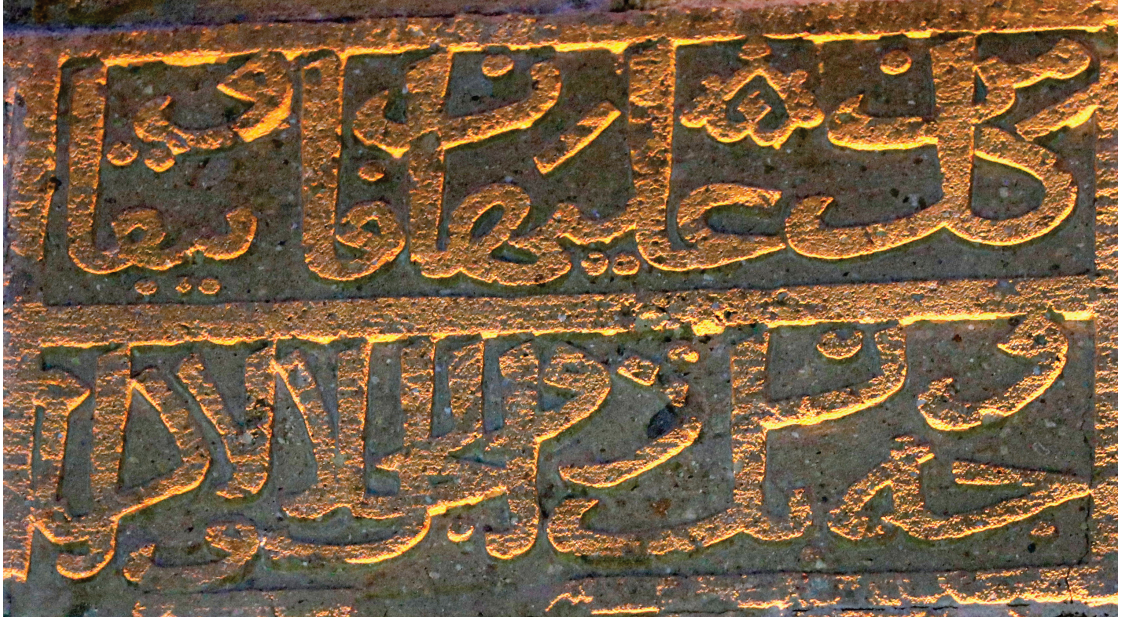 كل من عليها فان ويبقى
وجه ربك ذو الجلال والاكرام